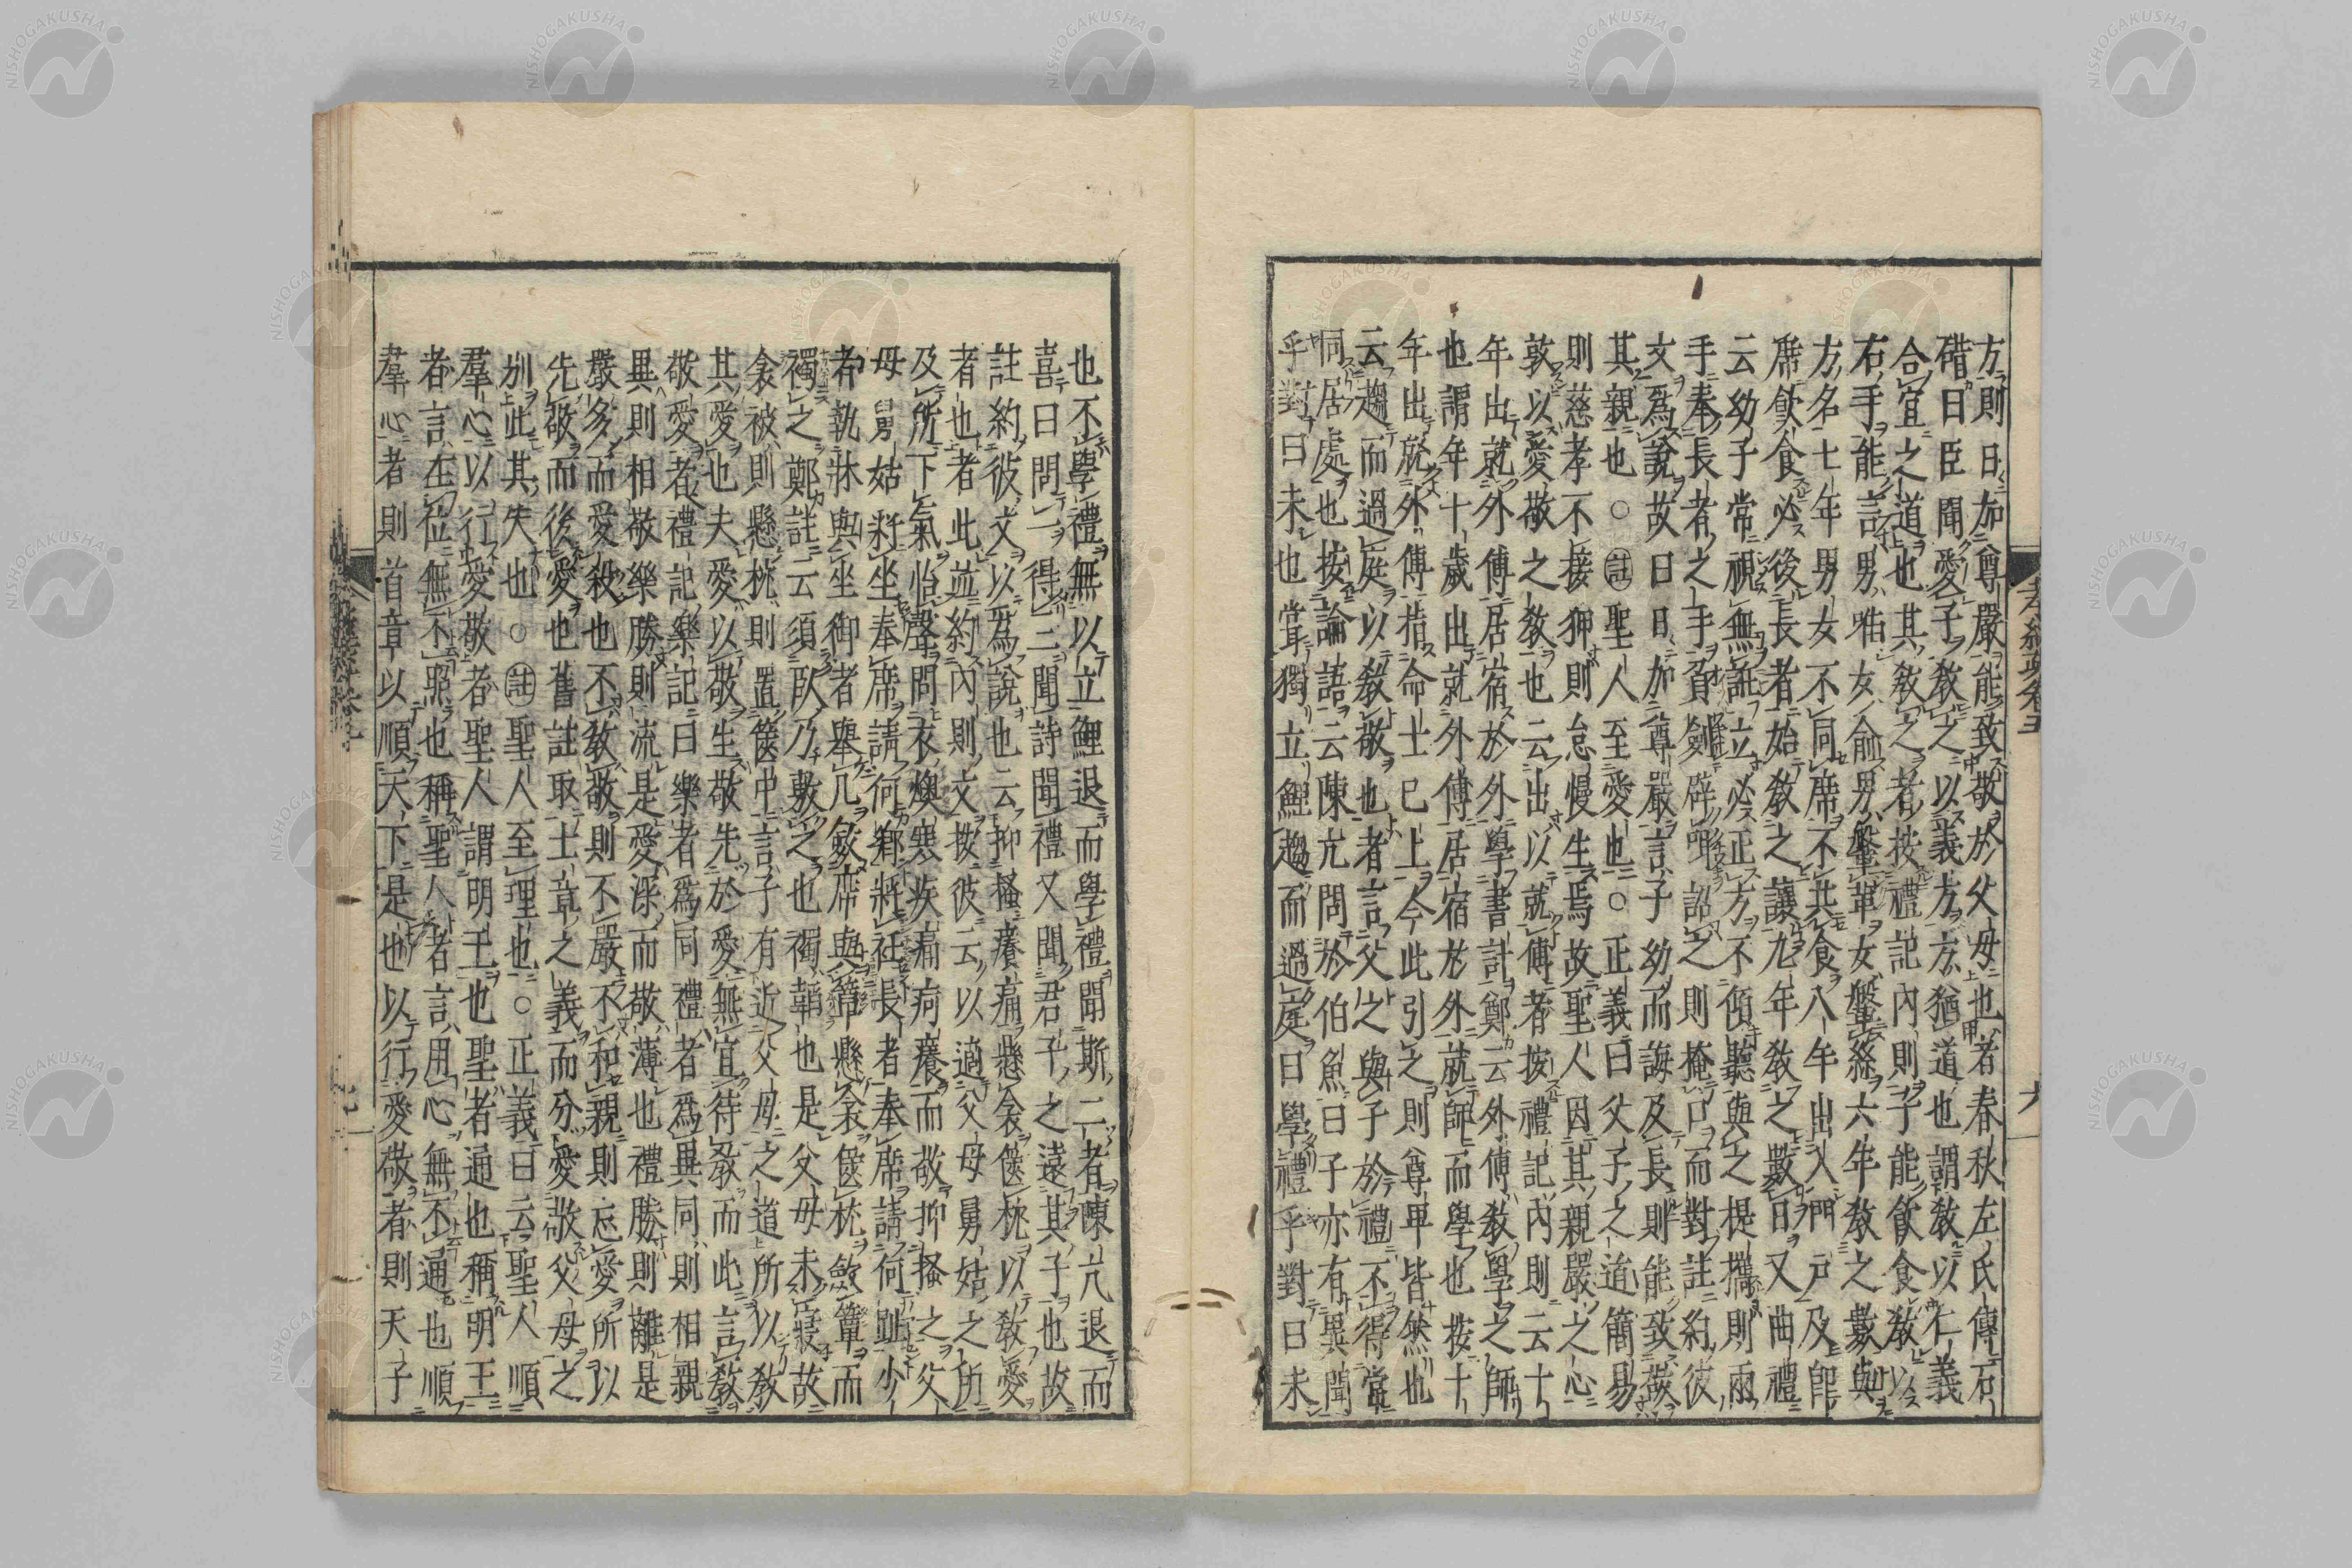 方則日加尊嚴能致敬於父母也者春秋左氏傳石
碏曰臣聞愛子敎之以義方方猶道也謂敎以仁義
合宜之道也其敎之者按禮記內則子能飮食敎以
右手能言男唯女兪男鞶革女鞶絲六年敎之數與
方名七年男女不同席不共食八年出入門戶及卽
席飮食必後長者始敎之讓九年敎之數日又曲禮
云幼子常視無誑立必正方不傾聽與之提攜則兩
手奉長者之手負劍辟咡詔之則掩口而對註約彼
文爲說故曰日加尊嚴言子幼而誨及長則能致敬
其親也○註聖人至愛也○正義曰父子之道簡易
則慈孝不接狎則怠慢生焉故聖人因其親嚴之心
敦以愛敬之敎也云出以就傅者按禮記內則云十
年出就外傅居宿於外學書計鄭云外傅敎學之師
也謂年十歲出就外傅居宿於外就師而學也按十
年出就外傅指命士已上今此引之則尊卑皆然也
云趨而過庭以敎敬也者言父之與子於禮不得常
同居處也按論語云陳亢問於伯魚曰子亦有異聞
乎對曰未也嘗獨立鯉趨而過庭曰學禮乎對曰未
孝經疏卷五
六
也不學禮無以立鯉退而學禮聞斯二者陳亢退而
喜曰問一得三聞詩聞禮又聞君子之遠其子也故
註約彼文以爲說也云抑搔癢痛懸衾篋枕以敎愛
者也者此並約內則文按彼云以適父母舅姑之所
及所下氣怡聲問衣燠寒疾痛疴癢而敬抑搔之父
母舅姑將坐奉席請何鄕將衽長者奉席請何趾少
者執牀與坐御者舉几斂席與簟懸衾篋枕斂簟而
襡之鄭註云須臥乃敷之也襡韜也是父母未寢故
衾被則懸枕則置篋中言子有近父母之道所以敎
其愛也夫愛以敬生敬先於愛無宜待敎而此言敎
敬愛者禮記樂記曰樂者爲同禮者爲異同則相親
異則相敬樂勝則流是愛深而敬薄也禮勝則離是
嚴多而愛殺也不敎敬則不嚴不和親則忘愛所以
先敬而後愛也舊註取士章之義而分愛敬父母之
別此其失也○註聖人至理也○正義曰云聖人順
羣心以行愛敬者聖人謂明王也聖者通也稱明王
者言在位無不照也稱聖人者言用心無不通也順
羣心者則首章以順天下是也以行愛敬者則天子